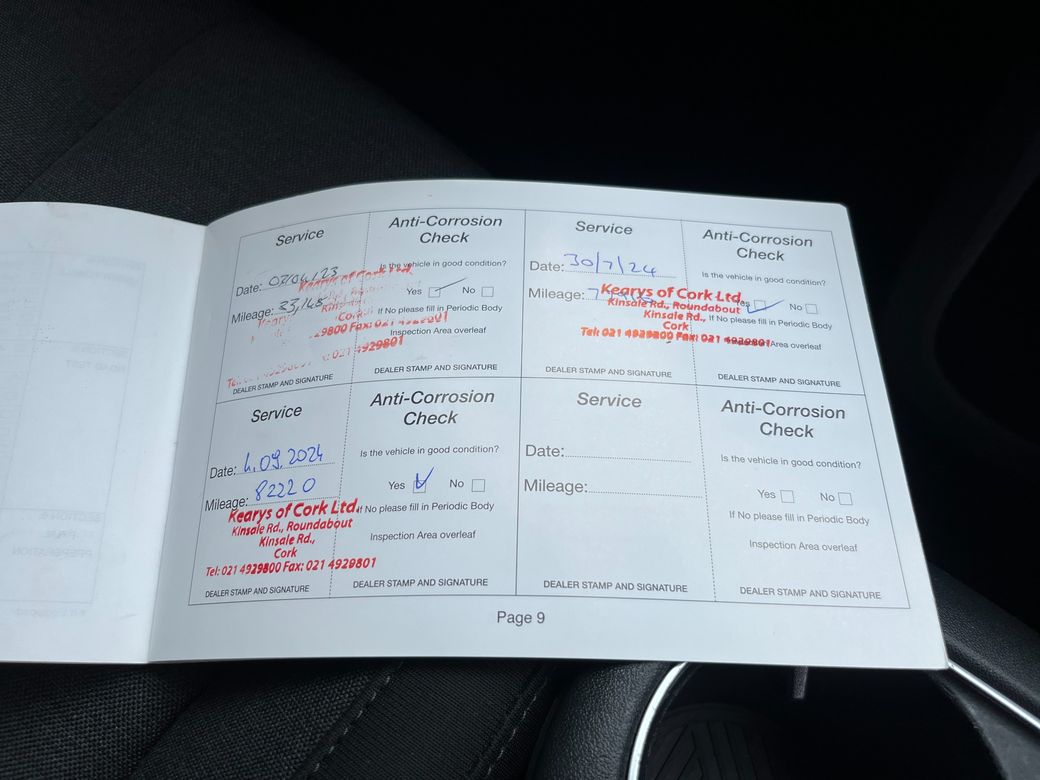 Service
Anti-Corrosion
Check
Date: 07/04/23
Is the vehicle in good condition?
Mileage: 33,148
Kearys of Cork Ltd.
Yes No
If No please fill in Periodic Body
Inspection Area overleaf
9800 Fax: 021 4929801
DEALER STAMP AND SIGNATURE
DEALER STAMP AND SIGNATURE
Service
Anti-Corrosion
Check
Date: 30/7/24
Is the vehicle in good condition?
Mileage:
Yes No
Kearys of Cork Ltd.
Kinsale Rd., Roundabout
Kinsale Rd.,
Cork
Tel: 021 4929800 Fax: 021 4929801
If No please fill in Periodic Body
Area overleaf
DEALER STAMP AND SIGNATURE
DEALER STAMP AND SIGNATURE
Service
Anti-Corrosion
Check
Date: 4.09.2024
Is the vehicle in good condition?
Mileage: 82220
Yes No
Kearys of Cork Ltd.
Kinsale Rd., Roundabout
Kinsale Rd.,
Cork
Tel: 021 4929800 Fax: 021 4929801
If No please fill in Periodic Body
Inspection Area overleaf
DEALER STAMP AND SIGNATURE
DEALER STAMP AND SIGNATURE
Service
Anti-Corrosion
Check
Date:
Is the vehicle in good condition?
Mileage:
Yes No
If No please fill in Periodic Body
Inspection Area overleaf
DEALER STAMP AND SIGNATURE
DEALER STAMP AND SIGNATURE
Page 9